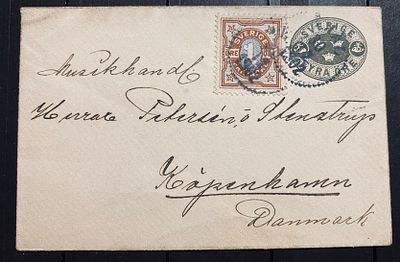 SVERIGE
ÖRE 1 ÖRE
SVERIGE
FYRA ÖRE
1902
Musikhandl
Herrar Petersén & Stenstrup
Köpenhamn
Danmark